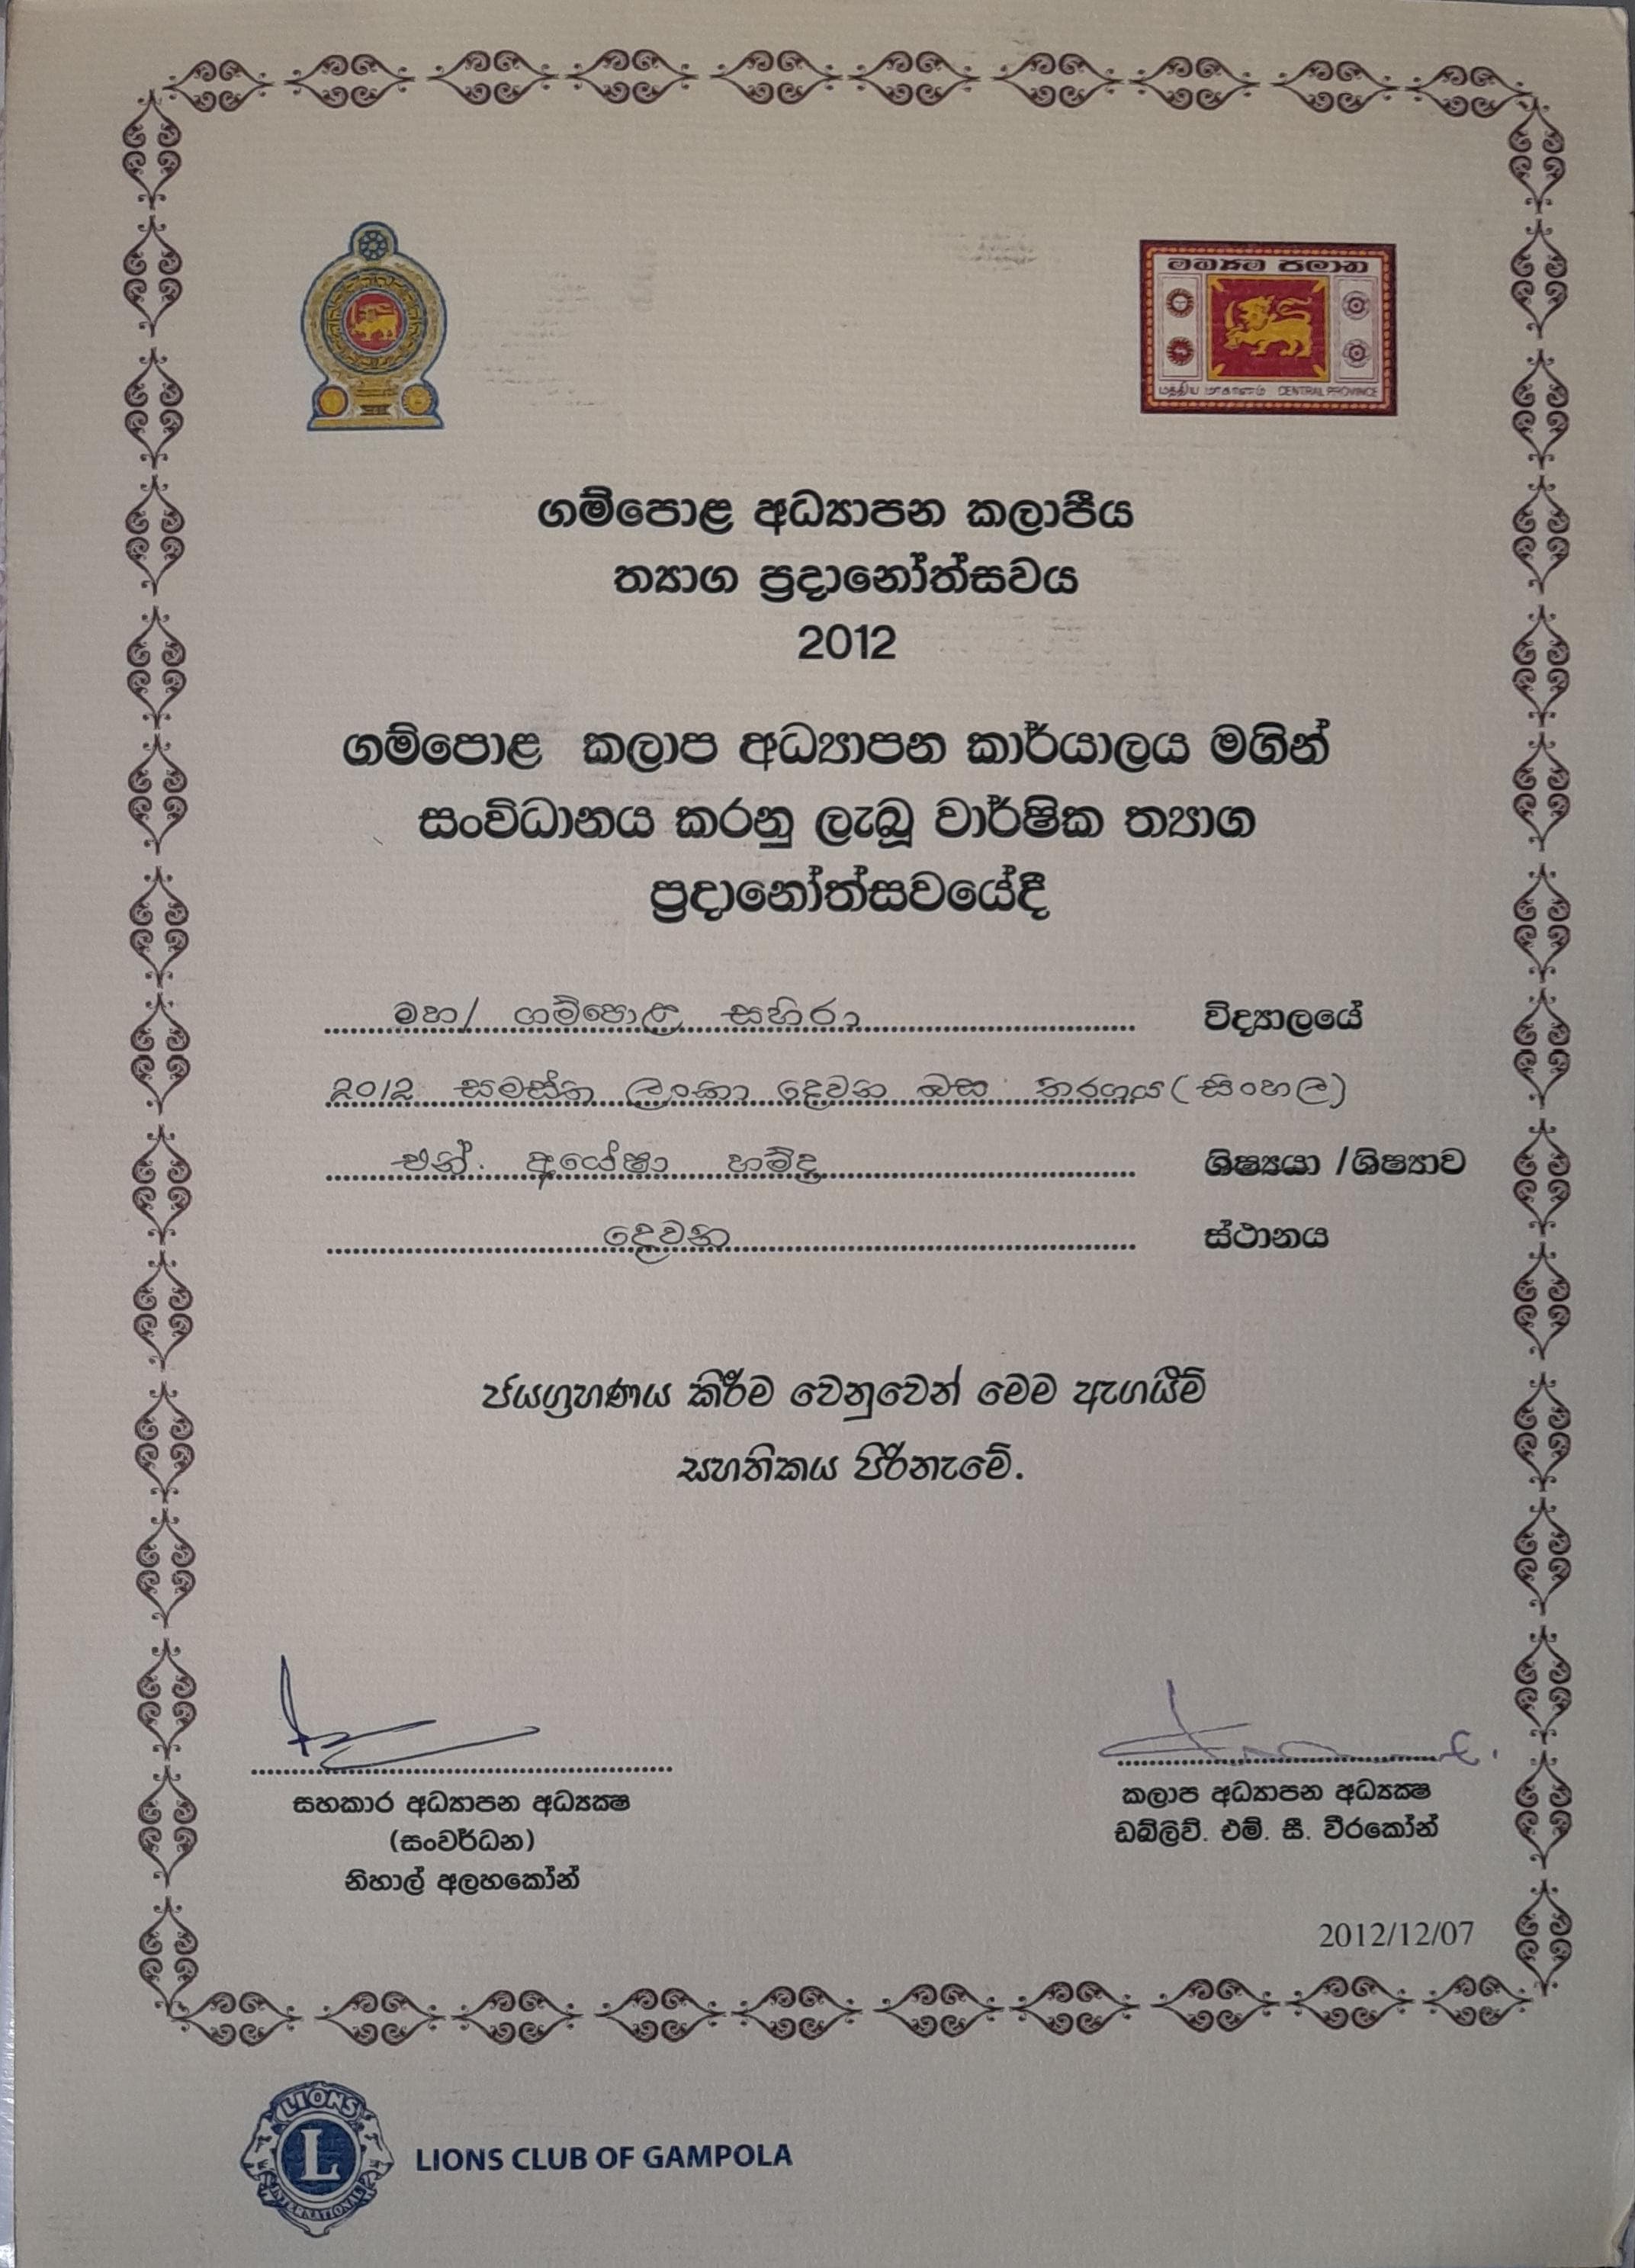 මධ්‍යම පලාත
மத்திய மாகாணம் CENTRAL PROVINCE
ගම්පොළ අධ්‍යාපන කලාපීය
ත්‍යාග ප්‍රදානෝත්සවය
2012
ගම්පොළ කලාප අධ්‍යාපන කාර්යාලය මගින්
සංවිධානය කරනු ලැබූ වාර්ෂික ත්‍යාග
ප්‍රදානෝත්සවයේදී
මහ/ ගම්පොළ සහිරා විද්‍යාලයේ
2012 සමස්ත ලංකා දෙවන බස තරගය (සිංහල)
එන්. අයේෂා හම්දා ශිෂ්‍යයා /ශිෂ්‍යාව
දෙවන ස්ථානය
ජයග්‍රහණය කිරීම වෙනුවෙන් මෙම ඇගයීම්
සහතිකය පිරිනැමේ.
සහකාර අධ්‍යාපන අධ්‍යක්ෂ
(සංවර්ධන)
නිහාල් අලහකෝන්
කලාප අධ්‍යාපන අධ්‍යක්ෂ
ඩබ්ලිව්. එම්. සී. වීරකෝන්
2012/12/07
LIONS
L
INTERNATIONAL
LIONS CLUB OF GAMPOLA